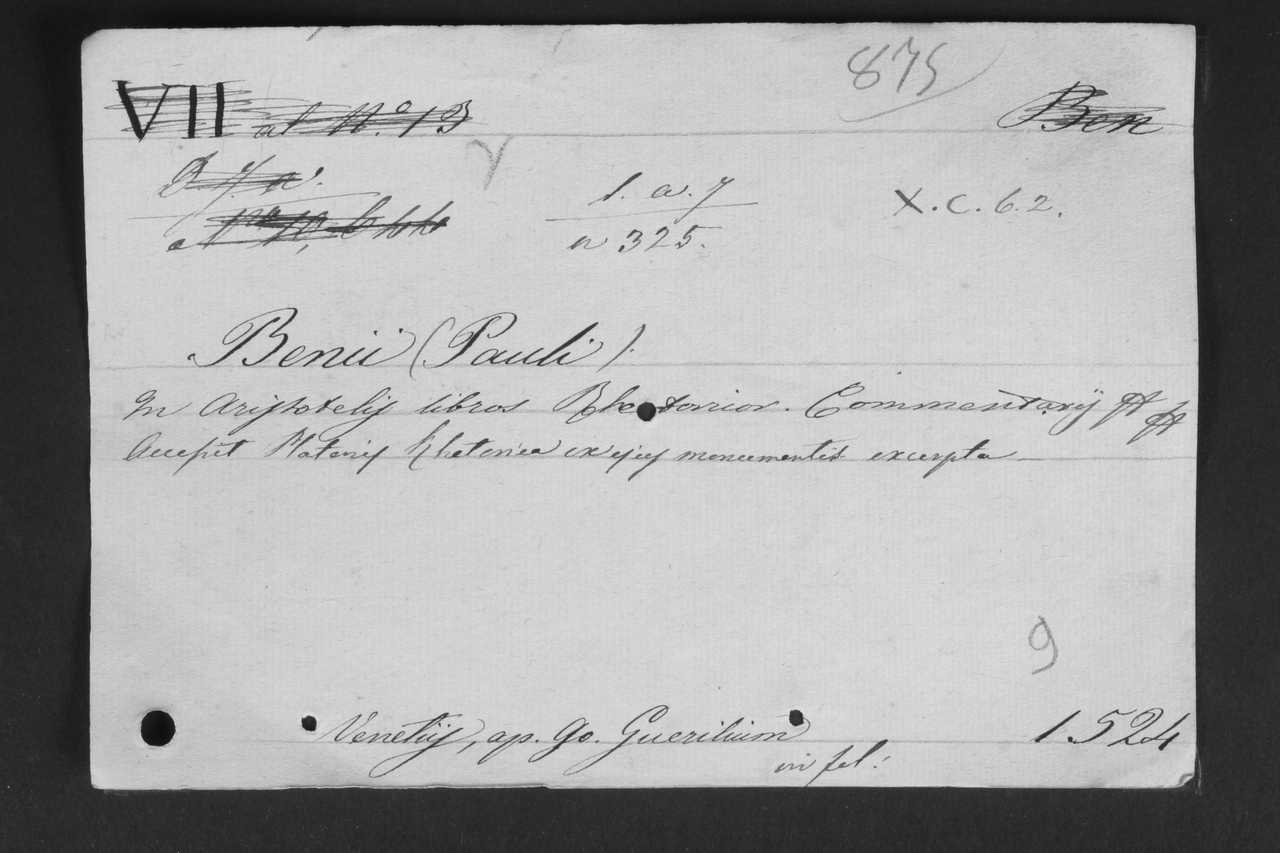 875
VII al N.o 13 Ben
l. a. 7
n 325.
X. C. 6. 2.
Benii (Pauli).
In Aristotelis libros Rhetoricor. Commentarij
Accepit Platonis Rhetorica ex ejus monumentis excerpta
9
Venetiis, ap. Jo. Guerilium 1524
in fol: